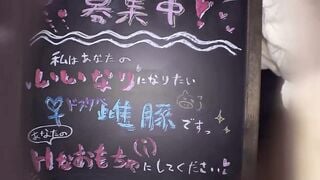 募集中♥
私はあなたの
いいなりになりたい
♀ドスケベ雌豚ですっ
あなたの
Hなおもちゃにしてください